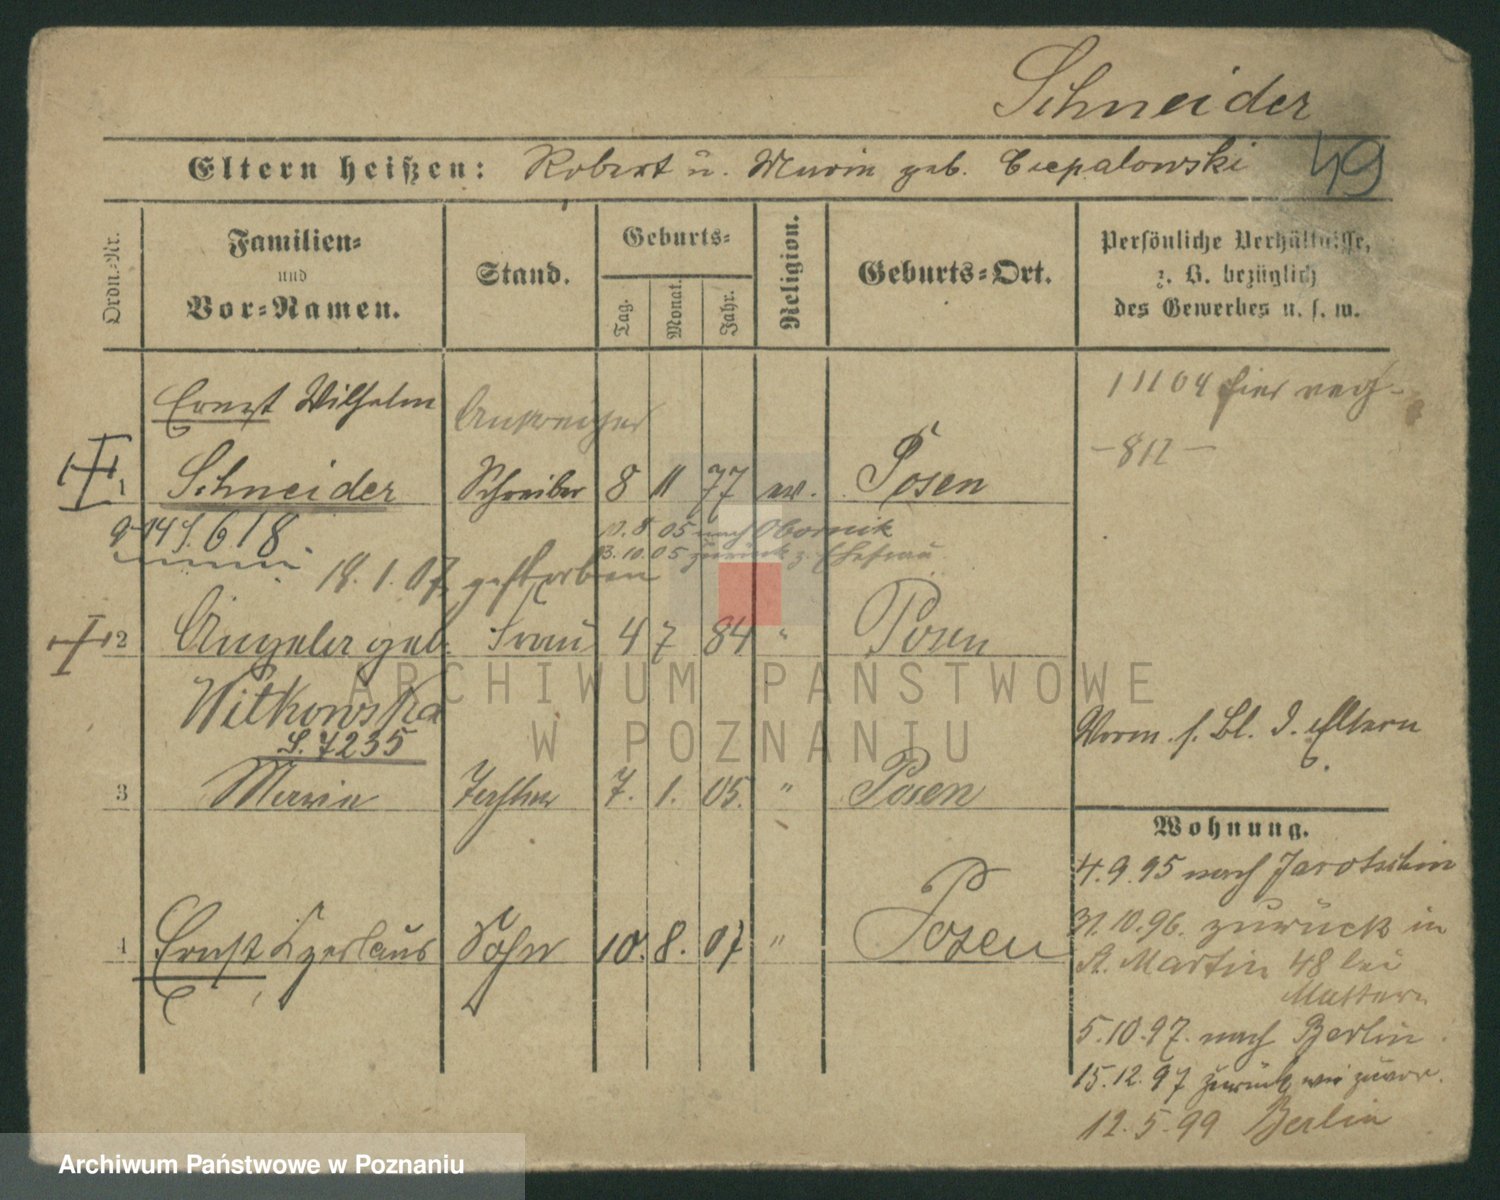 Schneider
Eltern heißen: Robert u. Marie geb. Ciepalowski
49
Ordn.-Nr.
Familien-
und
Vor-Namen.
Stand.
Geburts-
Tag.
Monat.
Jahr.
Religion.
Geburts-Ort.
Persönliche Verhältnisse,
z. B. bezüglich
des Gewerbes u. s. w.
Ernst Wilhelm
1 Schneider Schreiber 8 11 77 ev. Posen
11104 hier
- 812 -
618
10.8.05 nach Obornik
13.10.05 zurück z. Ehefrau
18.1.07 gestorben
2 Angela geb. Frau 4 7 84 " Posen
Witkowska
S. 7235
3 Maria Tochter 7. 1. 05. " Posen
Vorm. s. Bl. d. Eltern
4 Ernst Sohn 10. 8. 07 " Posen
Wohnung.
4.9.95 nach Jarotschin
31.10.96. zurück in
St. Martin 48 bei
Mattern
5.10.97. nach Berlin.
15.12.97 zurück wie zuvor.
12.5.99 Berlin
ARCHIWUM PAŃSTWOWE
W POZNANIU
Archiwum Państwowe w Poznaniu